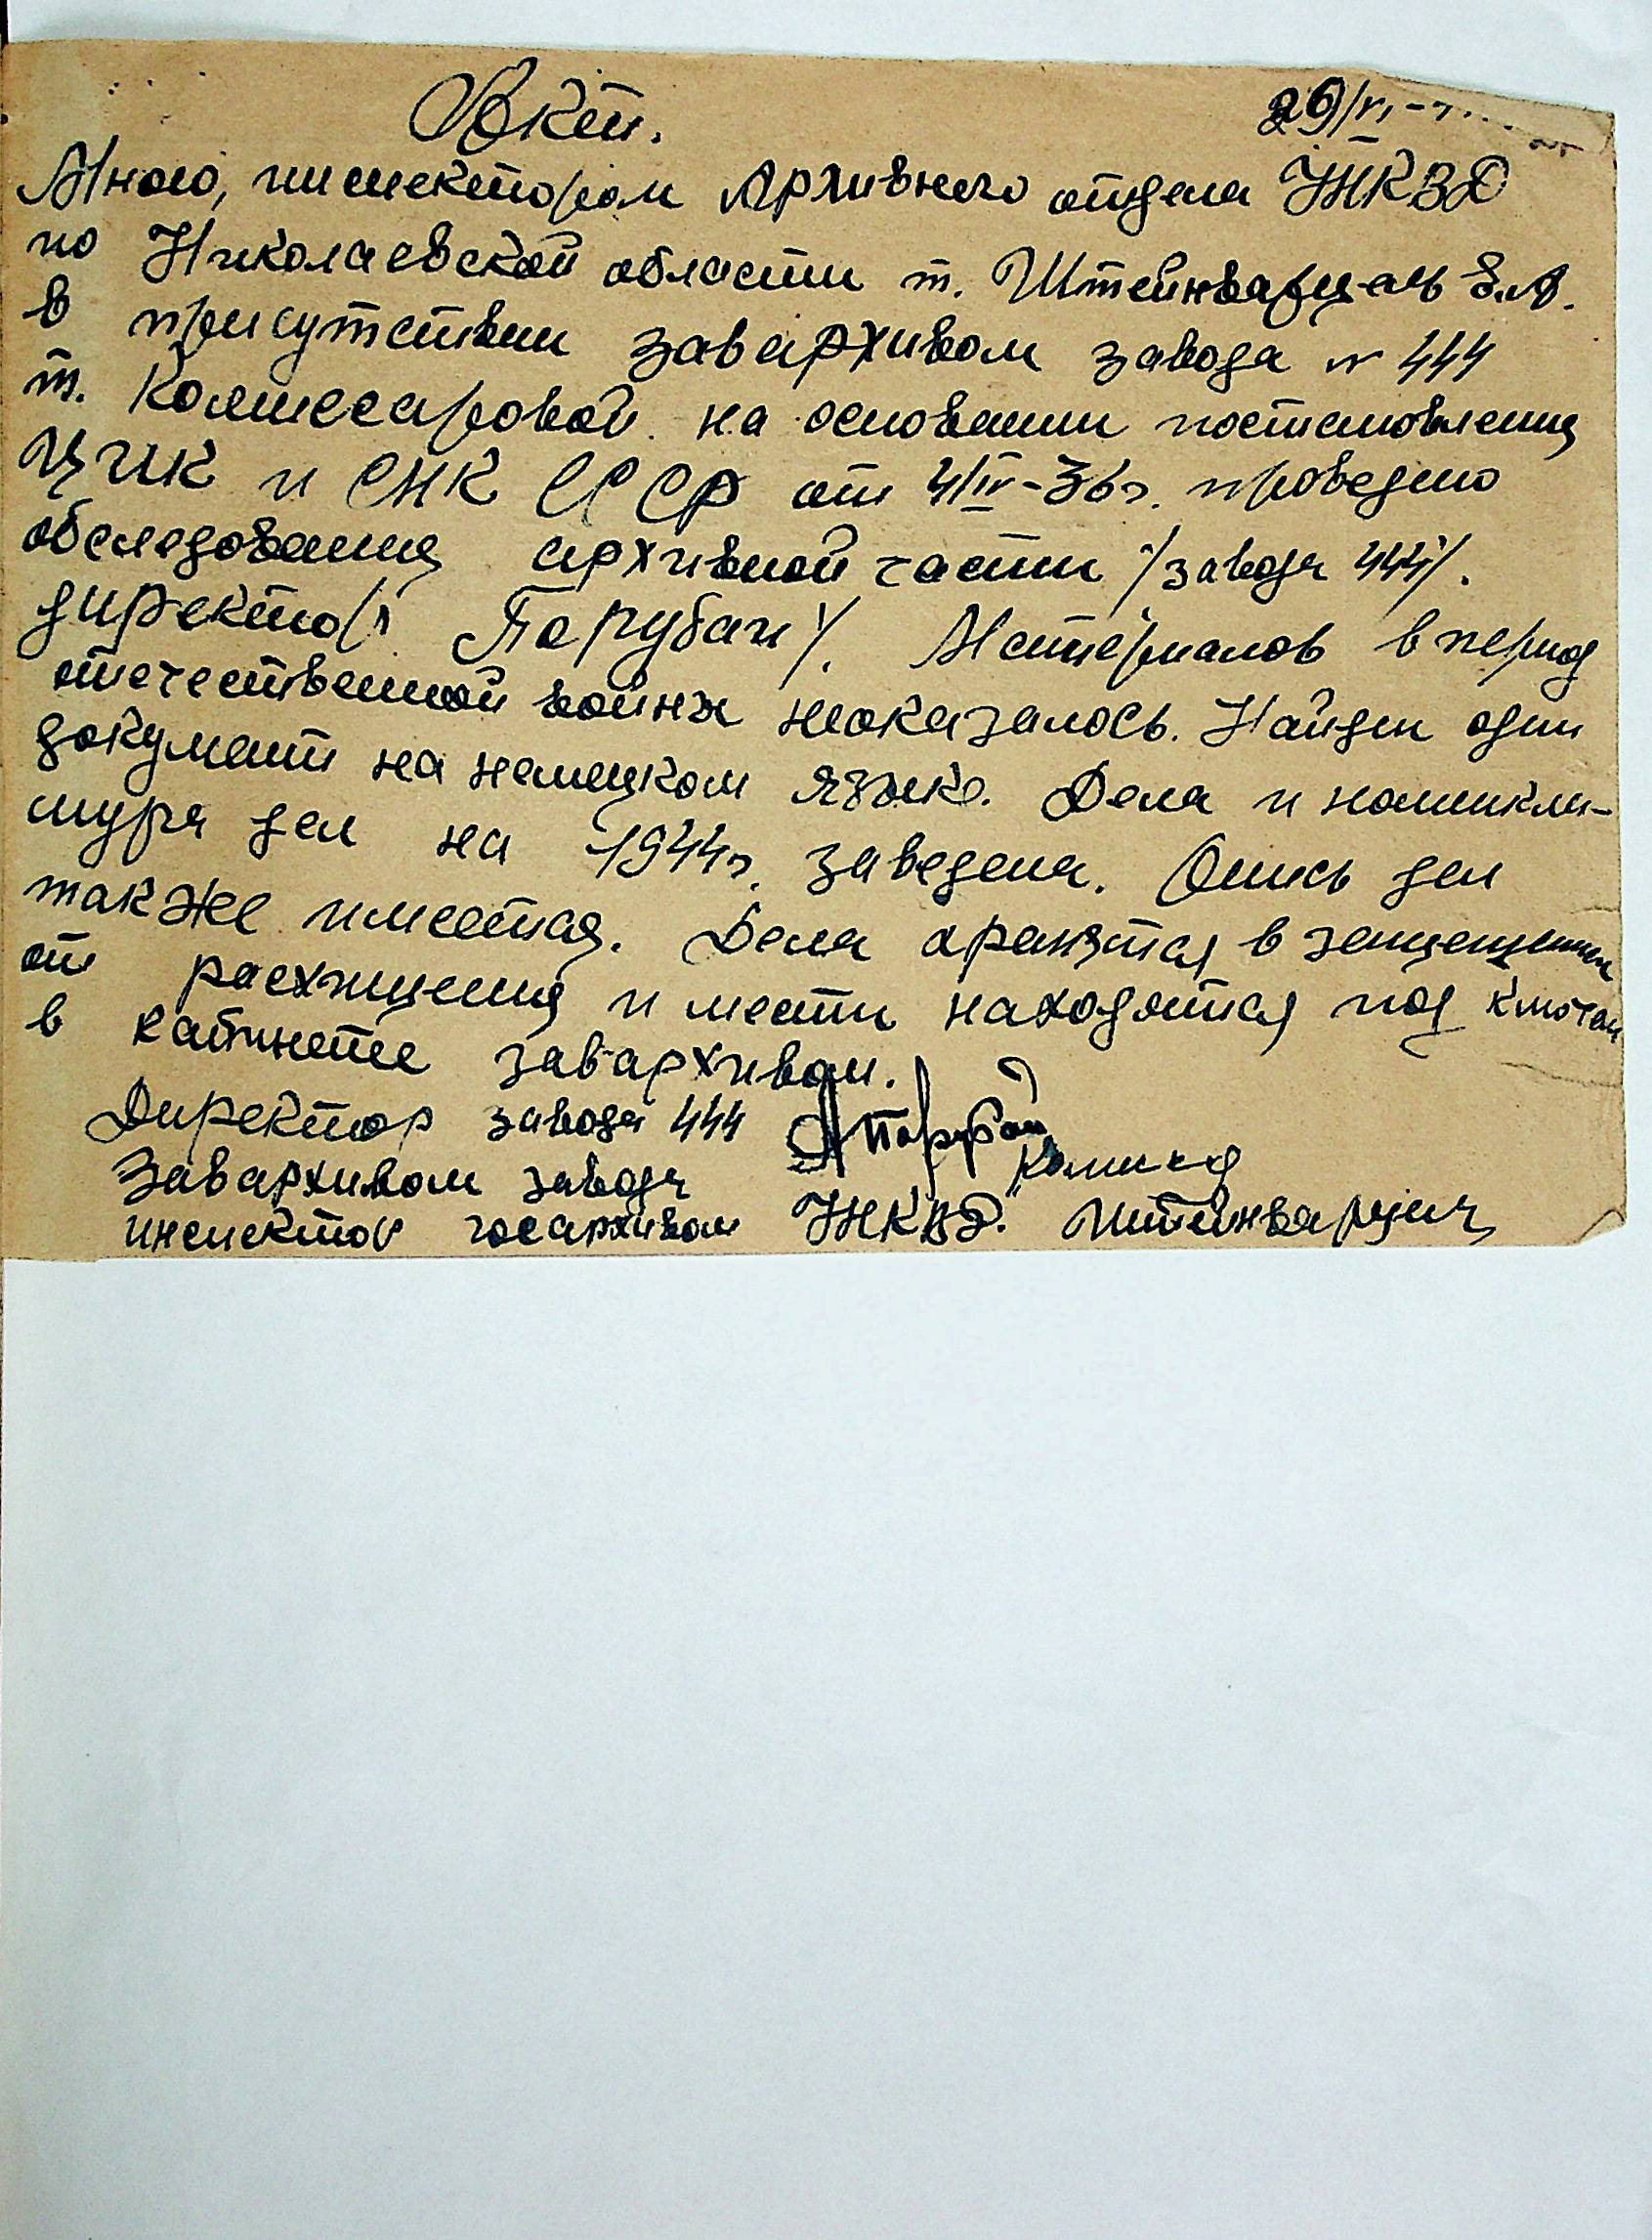 Акт.
29/VI
Мною, инспектором Архивного отдела УНКВД
по Николаевской области т. Штейнварцель Е.А.
в присутствии завархивом завода № 444
т. Коммесаровой на основании постановления
ЦИК и СНК СССР от 4/IV-36г. проведено
обследования архивной части /завода 444/.
директор Порубай/. Материалов в период
отечественной войны неоказалось. Найден один
документ на немецком языке. Дела и номинкли-
тура дел на 1944г. заведена. Опись дел
так же имеется. Дела хранятся в защещении
от расхищения и мести находятся под ключем
в кабинете завархивом.
Директор завода 444 Порубай
Завархивом завода
инспектор госархивом УНКВД. Штейнварцель